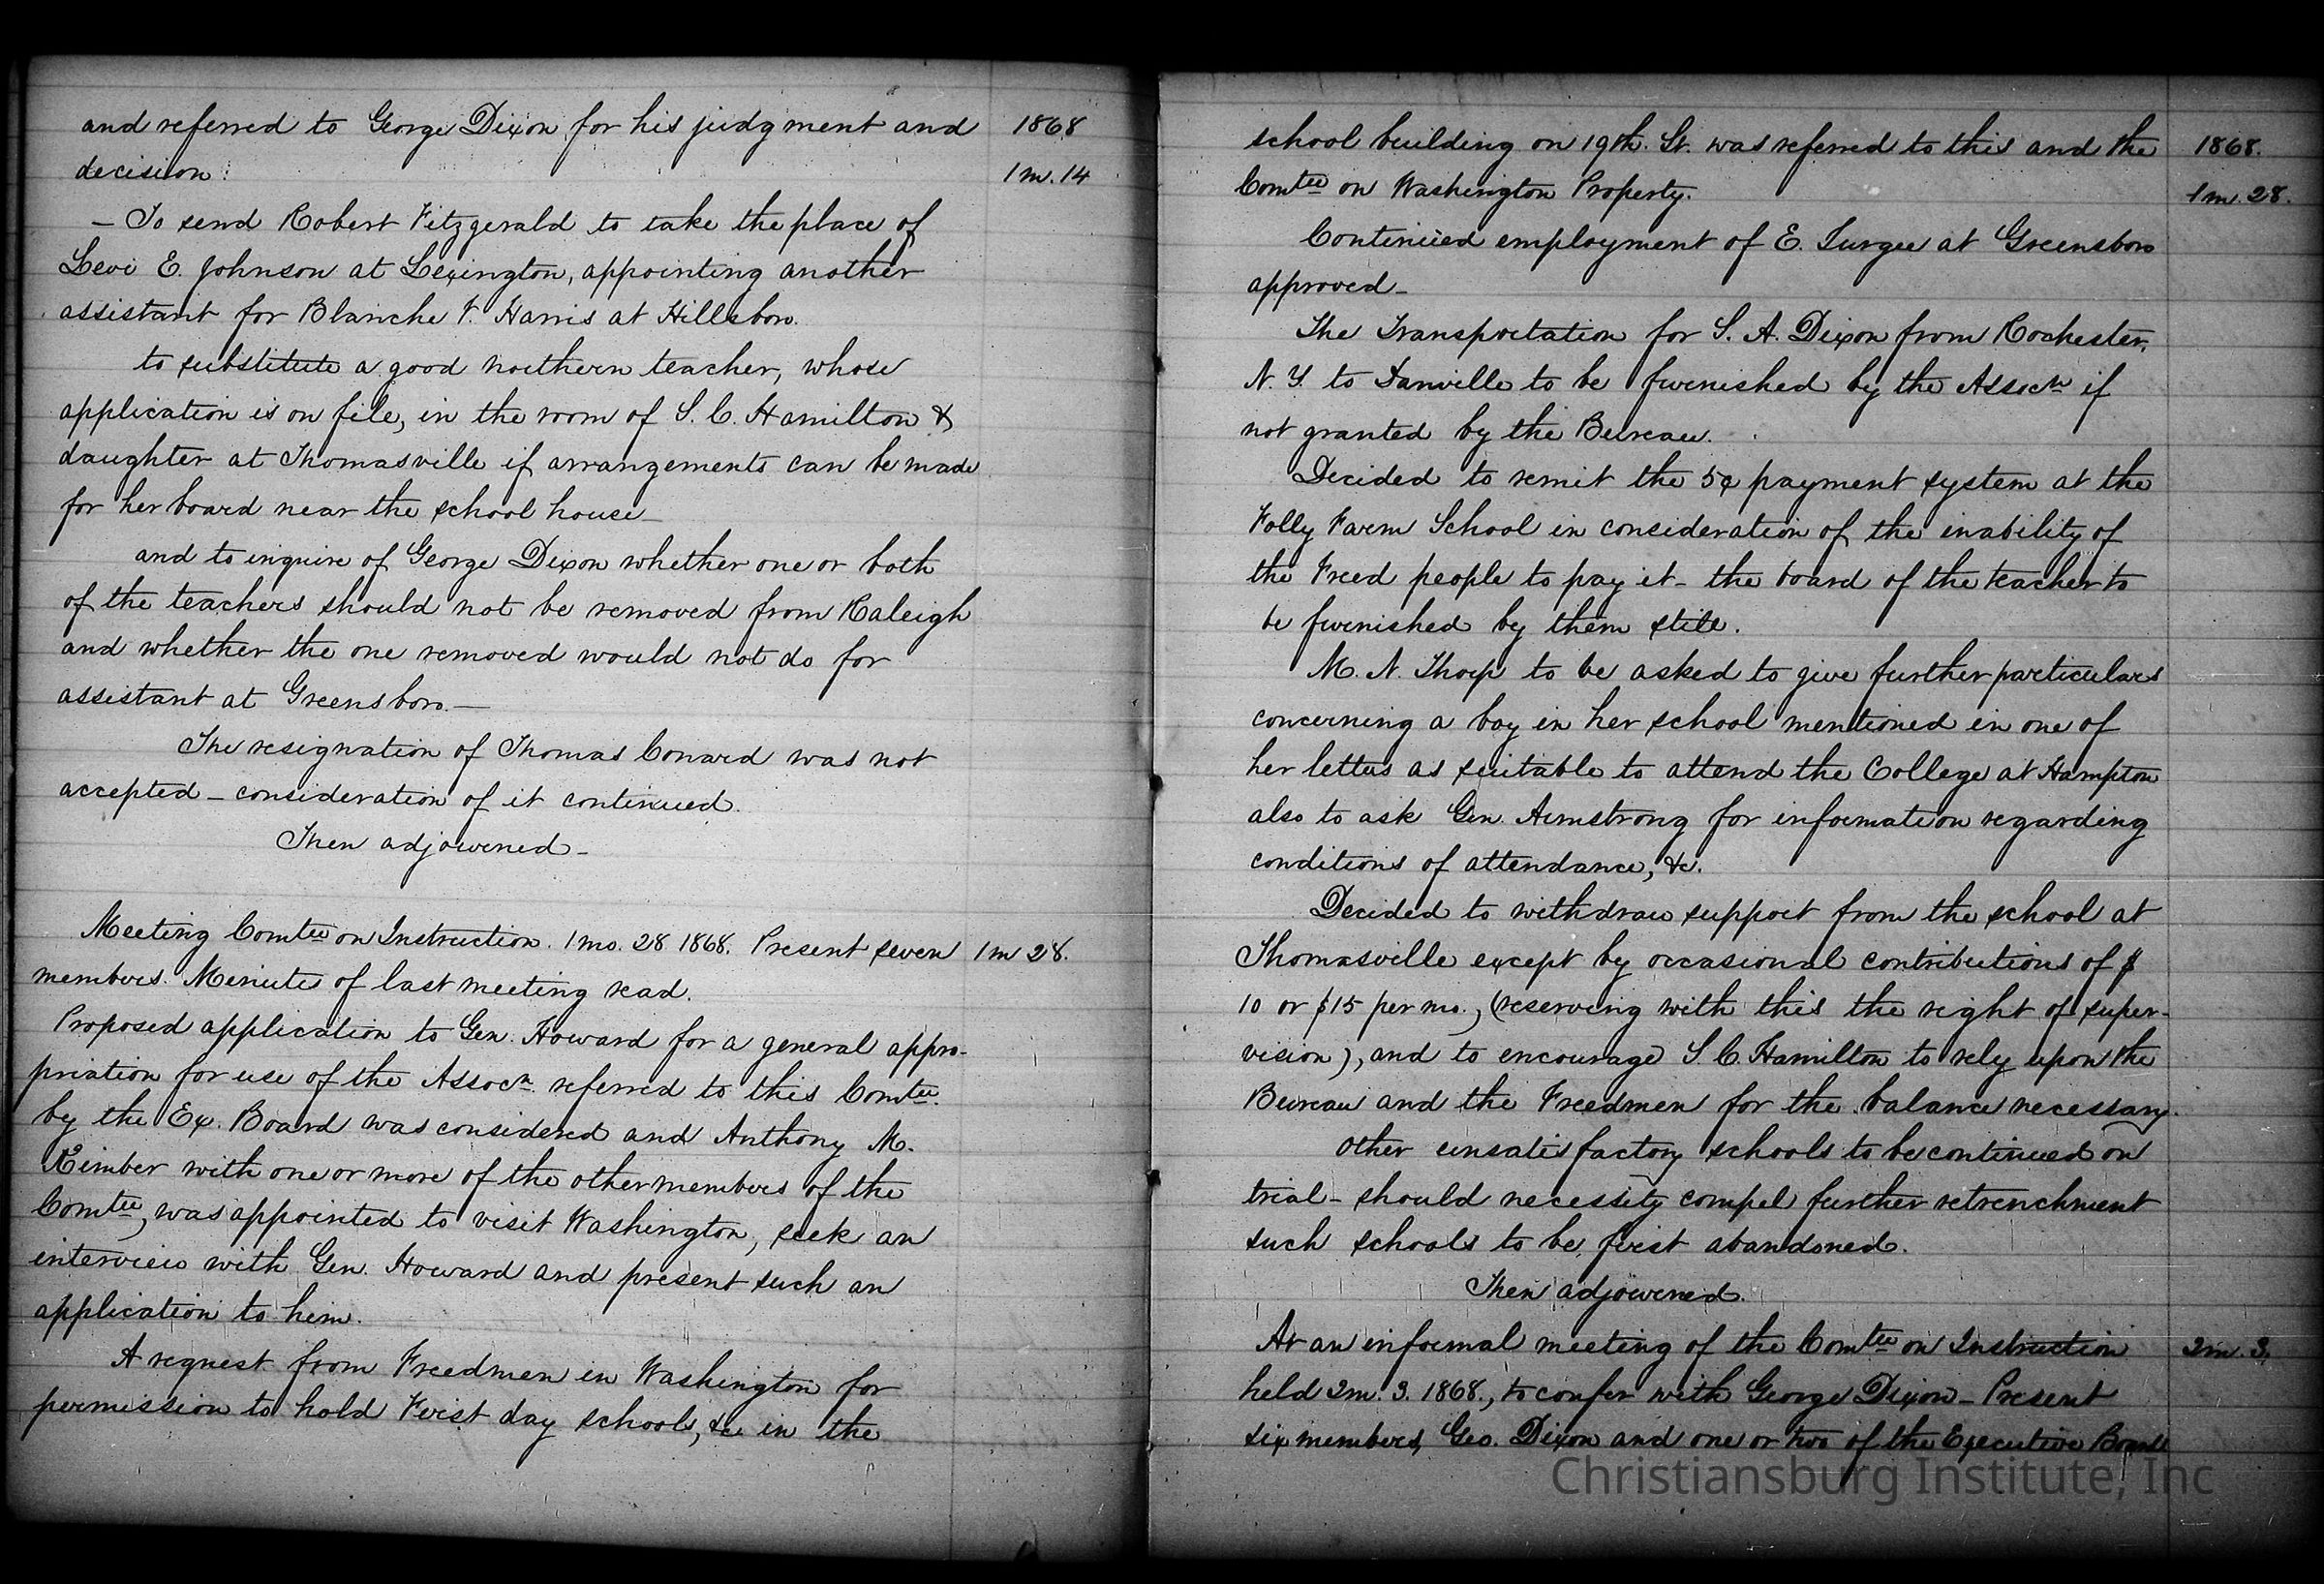 and referred to George Dixon for his judgment and 1868
decision. 1m. 14
– To send Robert Fitzgerald to take the place of
Levi E. Johnson at Lexington, appointing another
assistant for Blanche V. Harris at Hillsboro.
to substitute a good northern teacher, whose
application is on file, in the room of S. C. Hamilton &
daughter at Thomasville if arrangements can be made
for her board near the school house –
and to inquire of George Dixon whether one or both
of the teachers should not be removed from Raleigh
and whether the one removed would not do for
assistant at Greensboro. –
The resignation of Thomas Conard was not
accepted – consideration of it continued.
Then adjourned –
Meeting Comtee on Instruction. 1mo. 28 1868. Present seven 1m 28.
members. Minutes of last meeting read.
Proposed application to Gen. Howard for a general appro-
priation for use of the Assocn referred to this Comtee.
by the Ex. Board was considered and Anthony M.
Kimber with one or more of the other members of the
Comtee, was appointed to visit Washington, seek an
interview with Gen. Howard and present such an
application to him.
A request from Freedmen in Washington for
permission to hold First day schools, &c in the
school building on 19th. St. was referred to this and the 1868.
Comtee on Washington Property. 1m. 28.
Continued employment of E. Gurgee at Greensboro
approved –
The Transportation for S. A. Dixon from Rochester,
N. Y. to Danville to be furnished by the Assocn if
not granted by the Bureau.
Decided to remit the 5¢ payment system at the
Folly Farm School in consideration of the inability of
the Freed people to pay it – the board of the teacher to
be furnished by them still.
M. N. Thorp to be asked to give further particulars
concerning a boy in her school mentioned in one of
her letters as suitable to attend the College at Hampton
also to ask Gen. Armstrong for information regarding
conditions of attendance, &c.
Decided to withdraw support from the school at
Thomasville except by occasional contributions of $
10 or $15 per mo., (reserving with this the right of super-
vision), and to encourage S. C. Hamilton to rely upon the
Bureau and the Freedmen for the balance necessary.
Other unsatisfactory schools to be continued on
trial – should necessity compel further retrenchment
such schools to be first abandoned.
Then adjourned.
At an informal meeting of the Comtee on Instruction 2m. 3.
held 2m. 3. 1868., to confer with George Dixon – Present
six members, Geo. Dixon and one or two of the Executive Board
Christiansburg Institute, Inc